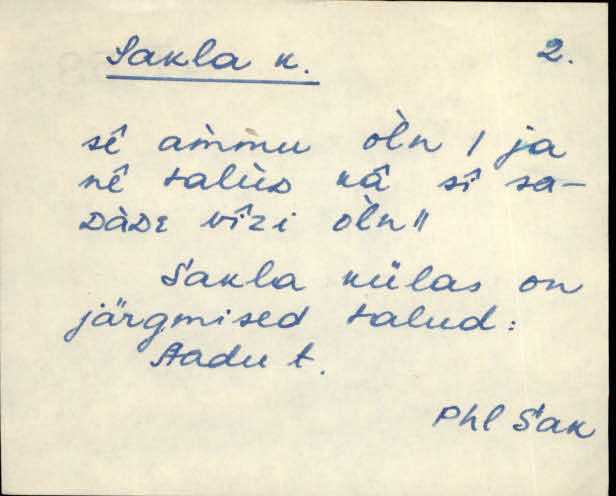 Sakla k. 2.
sê am̀mu òln / ja
nê talùᴅ kâ sî sa-
ᴅàᴅᴇ vîzi òln //
Sakla külas on
järgmised talud:
Aadu t.
Phl Sak